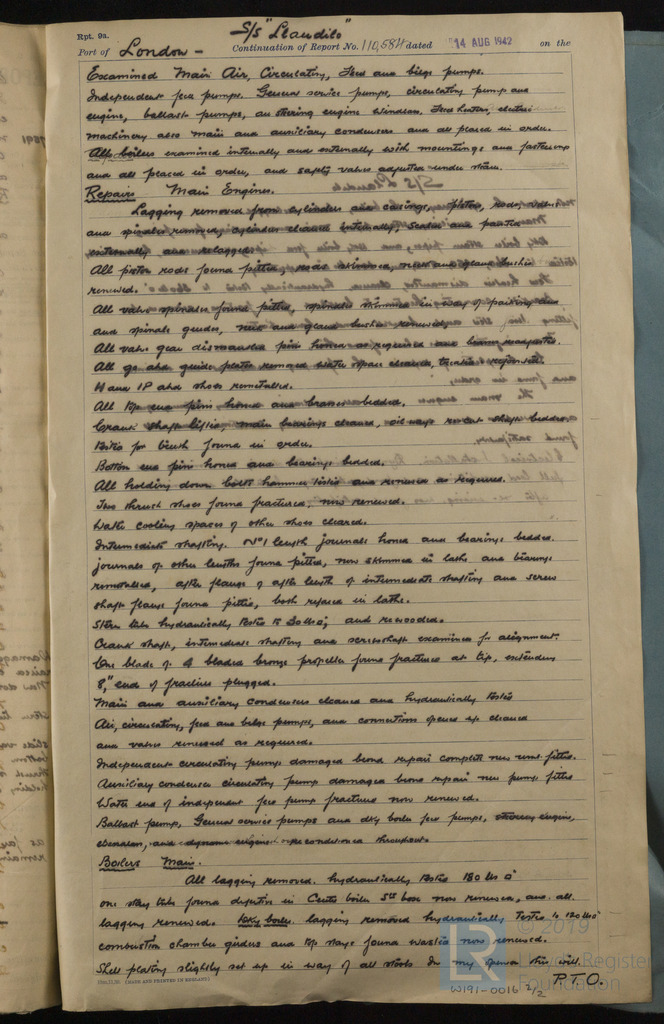 Rpt. 9a.
S/S "Llandilo"
Port of London -
Continuation of Report No. 110,584 dated 14 AUG 1942 on the
Examined Main Air, Circulating, Feed and bilge pumps.
Independent feed pumps. General service pumps, circulating pump and
engine, ballast pumps, steering engine windlass, feed heaters, electric
machinery also main and auxiliary condensers and all placed in order.
All boilers examined internally and externally with mountings and fastenings
and all placed in order, and safety valves adjusted under steam.
Repairs Main Engines.
Lagging removed from cylinders and casings, pistons, rods, valves
and spindles removed, cylinders cleaned internally, scaled and painted
externally and relagged.
All piston rods found pitted, rods skimmed, neck and gland bushes
renewed.
All valve spindles found pitted, spindles skimmed in way of packing
and spindle guides, neck and gland bushes renewed.
All valve gear dismantled pins honed as required and bearings readjusted.
All go ahd guide plates removed water spaces cleaned, tested & refitted.
H and IP ahd shoes remetalled.
All top end pins honed and brasses bedded.
Crank shaft lifted, main bearings cleaned, oil ways recut shaft bedded
Bottom end pins honed and bearings bedded.
All holding down bolts hammer tested and renewed as required.
Two thrust shoes found fractured, now renewed.
Water cooling spaces of other shoes cleared.
Intermediate shafting. No 1 length journals honed and bearings bedded.
journals of other lengths found pitted, now skimmed in lathe and bearings
remetalled, after flange of after length of intermediate shafting and screw
shaft flange found pitted, both refaced in lathe.
Stern tube hydraulically tested to 30 lbs □", and rewooded.
Crank shaft, intermediate shafting and screwshaft examined for alignment.
One blade of 4 bladed bronze propeller found fractured at tip, extending
8", end of fracture plugged.
Main and auxiliary condensers cleaned and hydraulically tested
Air, circulating, feed and bilge pumps, and connections opened up cleaned
and valves renewed as required.
Independent circulating pump damaged beyond repair complete new unit fitted.
Auxiliary condenser circulating pump damaged beyond repair new pump fitted
Water end of independent feed pump fractured now renewed.
Ballast pump, General service pumps and dky boiler feed pumps, steering engine,
and dynamo engines reconditioned throughout.
Boilers Main.
All lagging removed. hydraulically tested 180 lbs □"
one stay tube found defective in Centre boiler now renewed, and all
lagging renewed. Dky boiler lagging removed hydraulically tested to 120 lbs □"
combustion chamber girders and top stays found wasted now renewed.
Shell plating slightly set up in way of all stools In my opinion this will
P.T.O.
W191-0016 2/2
© 2019
Lloyd's Register
Foundation